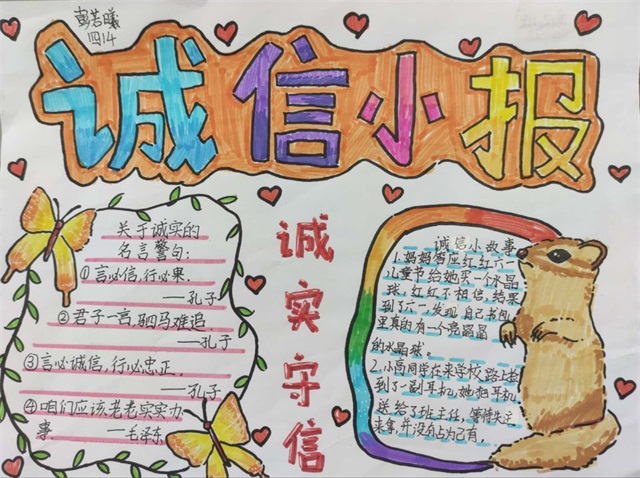 彭若曦
四14
诚信小报
关于诚实的
名言警句:
①言必信,行必果.
——孔子
②君子一言,驷马难追.
——孔子
③言必诚信,行必忠正.
——孔子
④咱们应该老老实实力
事 ——毛泽东
诚
实
守
信
诚信小故事
1.妈妈答应红红六一
儿童节给她买一个水晶
球,红红不相信,结果
到了六一,发现自己书包
里真的有一个亮晶晶
的水晶球。
2.小高同学在来学校路上捡
到了一副耳机,她把耳机
送给了班主任,等待失主
来拿,并没有占为己有,